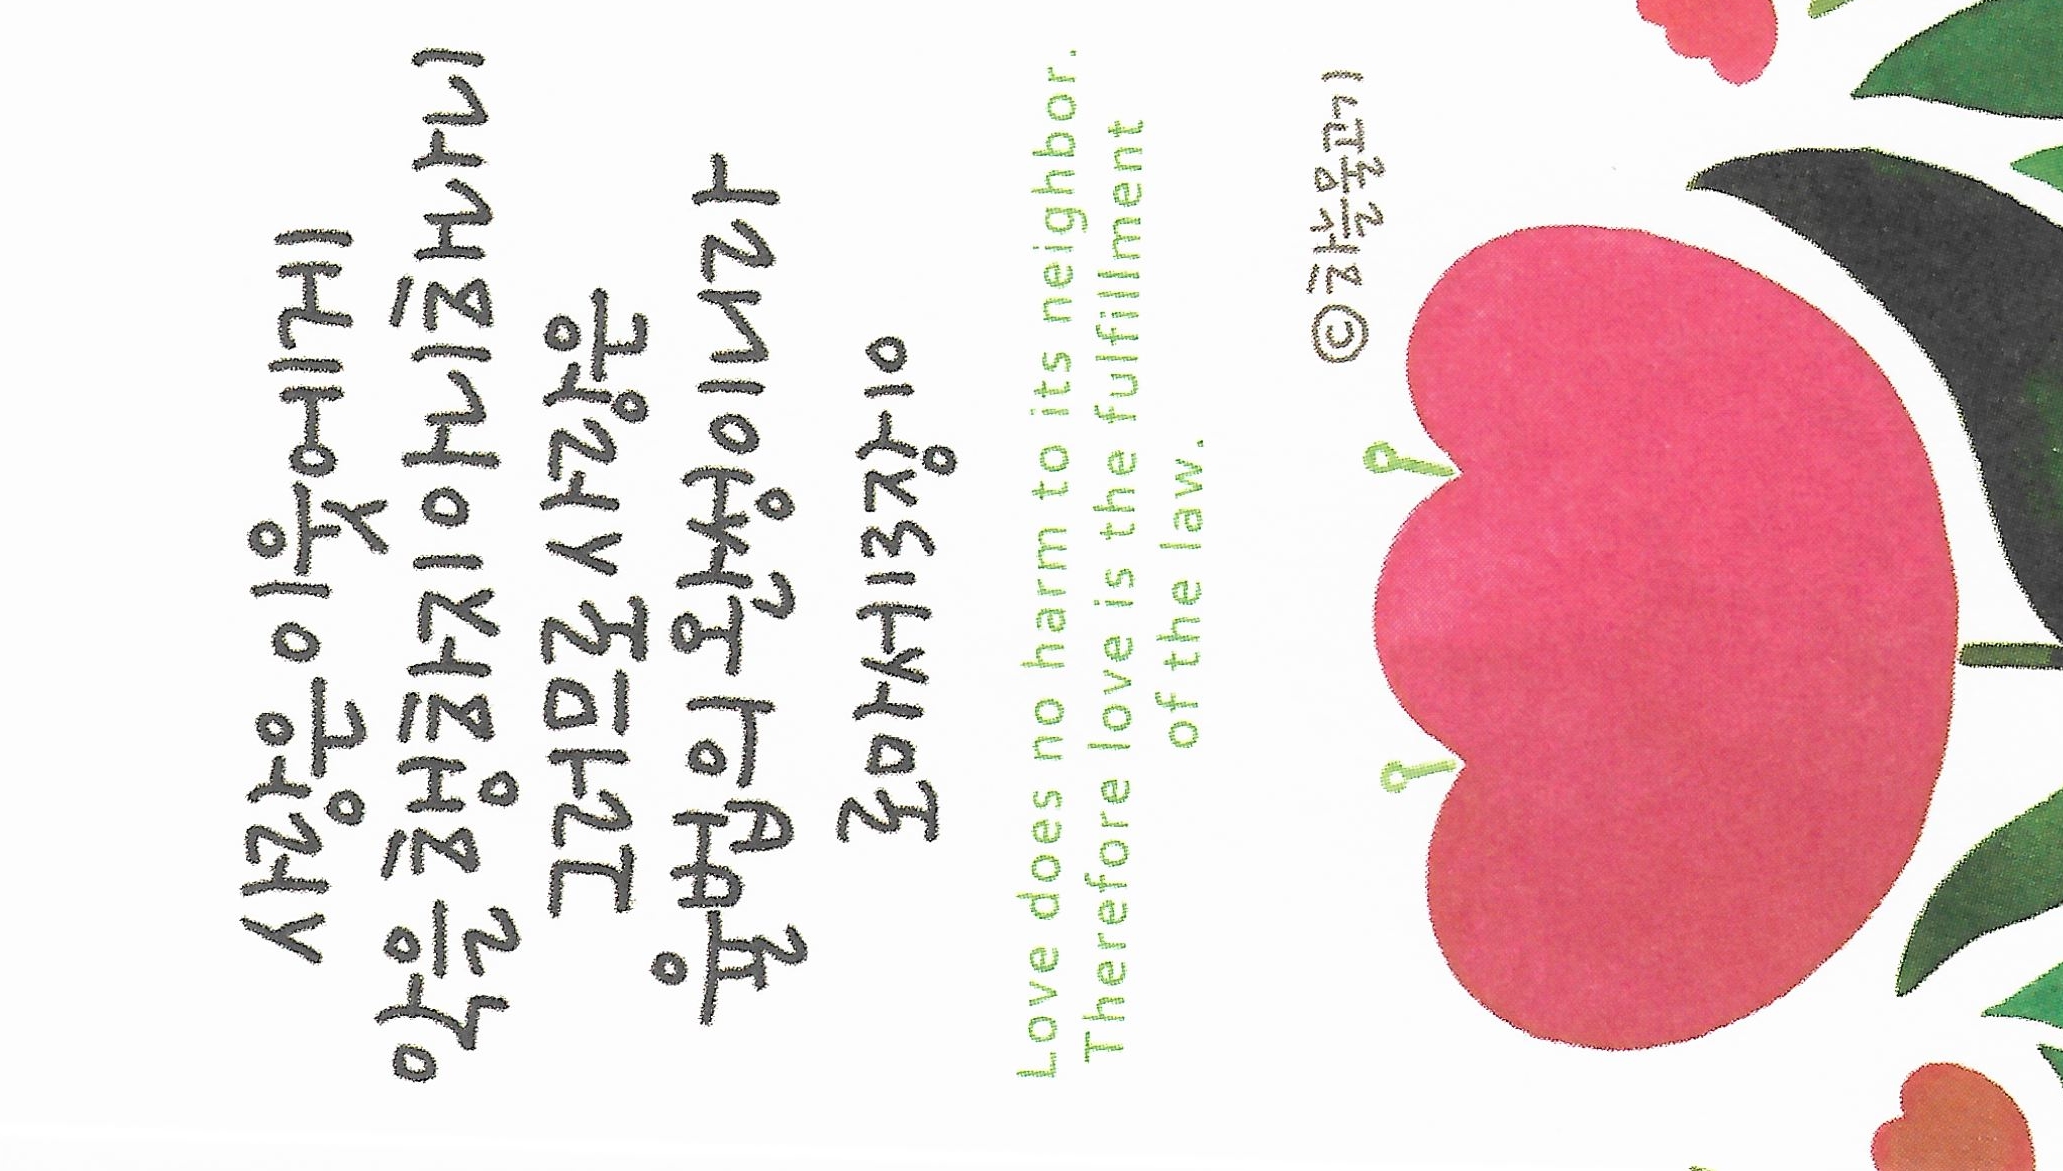 사랑은 이웃에게
악을 행하지 아니하나니
그러므로 사랑은
율법의 완성이니라
로마서13장10
Love does no harm to its neighbor.
Therefore love is the fulfillment
of the law.
© 하늘물고기